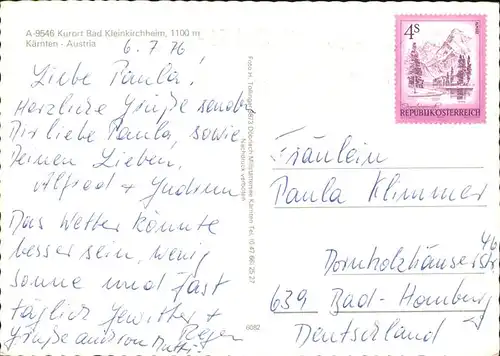 A-9546 Kurort Bad Kleinkirchheim, 1100 m
Kärnten - Austria
6.7.76
Liebe Paula!
Herzliche Grüße senden
Dir liebe Paula, sowie
Deinen Lieben,
Alfred + Gudrun
Das Wetter könnte
besser sein, wenig
sonne und fast
täglich Gewitter +
Regen
Grüße
Foto H.
9873 Döbriach Millstättersee Kärnten Tel. (0 42 46)
Nachdruck verboten
6082
4S
REPUBLIK ÖSTERREICH
Fräulein
Paula Klimmer
Dornholzhäuserstr
46
639 Bad-Homburg
Deutschland